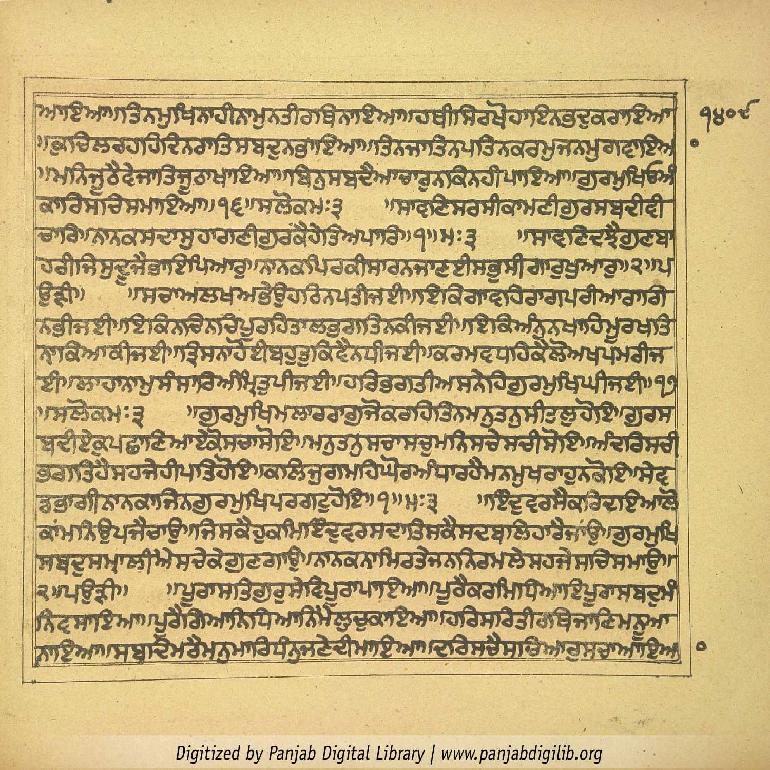 ੧੪੦੯
ਆਇਆ॥ਤਿਨਮੁਖਿਨਾਹੀਨਾਮੁਨਤੀਰਥਿਨਾਇਆ॥ਹਥੀਸਿਰਖੋਹਾਇਨਭਦੁਕਰਾਇਆ
॥ਕੁਚਿਲਰਹਹਿਦਿਨਰਾਤਿਸਬਦੁਨਭਾਇਆ॥ਤਿਨਜਾਤਿਨਪਤਿਨਕਰਮੁਜਨਮੁਗਵਾਇਆ
॥ਮਨਿਜੂਠੈਵੇਜਾਤਿਜੂਠਾਖਾਇਆ॥ਬਿਨੁਸਬਦੈਆਚਾਰੁਨਕਿਨਹੀਪਾਇਆ॥ਗੁਰਮੁਖਿਓਅੰ
ਕਾਰਿਸਚਿਸਮਾਇਆ॥੧੬॥ਸਲੋਕਮਃ੩ ॥ਸਾਵਣਿਸਰਸੀਕਾਮਣੀਗੁਰਸਬਦੀਵੀ
ਚਾਰਿ॥ਨਾਨਕਸਦਾਸੁਹਾਗਣੀਗੁਰਕੈਹੇਤਿਅਪਾਰਿ॥੧॥ਮਃ੩ ॥ਸਾਵਣਿਦਝੈਗੁਣਬਾ
ਹਰੀਜਿਸੁਦੂਜੈਭਾਇਪਿਆਰੁ॥ਨਾਨਕਪਿਰਕੀਸਾਰਨਜਾਣਈਸਭੁਸੀਗਾਰੁਖੁਆਰੁ॥੨॥ਪ
ਉੜੀ॥ ॥ਸਚਾਅਲਖਅਭੇਉਹਠਿਨਪਤੀਜਈ॥ਇਕਿਗਾਵਹਿਰਾਗਪਰੀਆਰਾਗਿ
ਨਭੀਜਈ॥ਇਕਿਨਚਿਨਚਿਪੂਰਹਿਤਾਲਭਗਤਿਨਕੀਜਈ॥ਇਕਿਅੰਨੁਨਖਾਹਿਮੂਰਖਤਿ
ਨਾਕਿਆਕੀਜਈ॥ਤ੍ਰਿਸਨਾਹੋਈਬਹੁਤੁਕਿਵੈਨਧੀਜਈ॥ਕਰਮਵਧਹਿਕੈਲੋਅਖਪਿਮਰੀਜ
ਈ॥ਲਾਹਾਨਾਮੁਸੰਸਾਰਿਅੰਮ੍ਰਿਤੁਪੀਜਈ॥ਹਰਿਭਗਤੀਅਸਨੇਹਿਗੁਰਮੁਖਿਘੀਜਈ॥੧੭
॥ਸਲੋਕਮਃ੩ ॥ਗੁਰਮੁਖਿਮਲਾਰਰਾਗੁਜੋਕਰਹਿਤਿਨਮਨੁਤਨੁਸੀਤਲੁਹੋਇ॥ਗੁਰਸ
ਬਦੀਏਕੁਪਛਾਣਿਆਏਕੋਸਚਾਸੋਇ॥ਮਨੁਤਨੁਸਚਾਸਚੁਮਨਿਸਚੇਸਚੀਸੋਇ॥ਅੰਦਰਿਸਚੀ
ਭਗਤਿਹੈਸਹਜੇਹੀਪਤਿਹੋਇ॥ਕਲਿਜੁਗਮਹਿਘੋਰਅੰਧਾਰਹੈਮਨਮੁਖਰਾਹੁਨਕੋਇ॥ਸੇਵ
ਡਭਾਗੀਨਾਨਕਾਜਿਨਗੁਰਮੁਖਿਪਰਗਟੁਹੋਇ॥੧॥ਮਃ੩ ॥ਇੰਦੁਵਰਸੈਕਰਿਦਇਆਲੋ
ਕਾਂਮਨਿਉਪਜੈਚਾਉ॥ਜਿਸਕੈਹੁਕਮਿਇੰਦੁਵਰਸਦਾਤਿਸਕੈਸਦਬਲਿਹਾਰੈਜਾਂਉ॥ਗੁਰਮੁਖਿ
ਸਬਦੁਸਮ੍ਹਾਲੀਐਸਚੇਕੇਗੁਣਗਾਉ॥ਨਾਨਕਨਾਮਿਰਤੇਜਨਨਿਰਮਲੇਸਹਜੇਸਚਿਸਮਾਉ॥
੨॥ਪਉੜੀ॥ ॥ਪੂਰਾਸਤਿਗੁਰੁਸੇਵਿਪੂਰਾਪਾਇਆ॥ਪੂਰੈਕਰਮਿਧਿਆਇਪੂਰਾਸਬਦੁਮੰ
ਨਿਵਸਾਇਆ॥ਪੂਰੈਗਿਆਨਿਧਿਆਨਿਮੈਲੁਚੁਕਾਇਆ॥ਹਰਿਸਰਿਤੀਰਥਿਜਾਣਿਮਨੂਆ
ਨਾਇਆ॥ਸਬਦਿਮਰੈਮਨੁਮਾਰਿਧੰਨੁਜਣੇਦੀਮਾਇਆ॥ਦਰਿਸਚੈਸਚਿਆਰੁਸਚਾਆਇਆ
Digitized by Panjab Digital Library | www.panjabdigilib.org